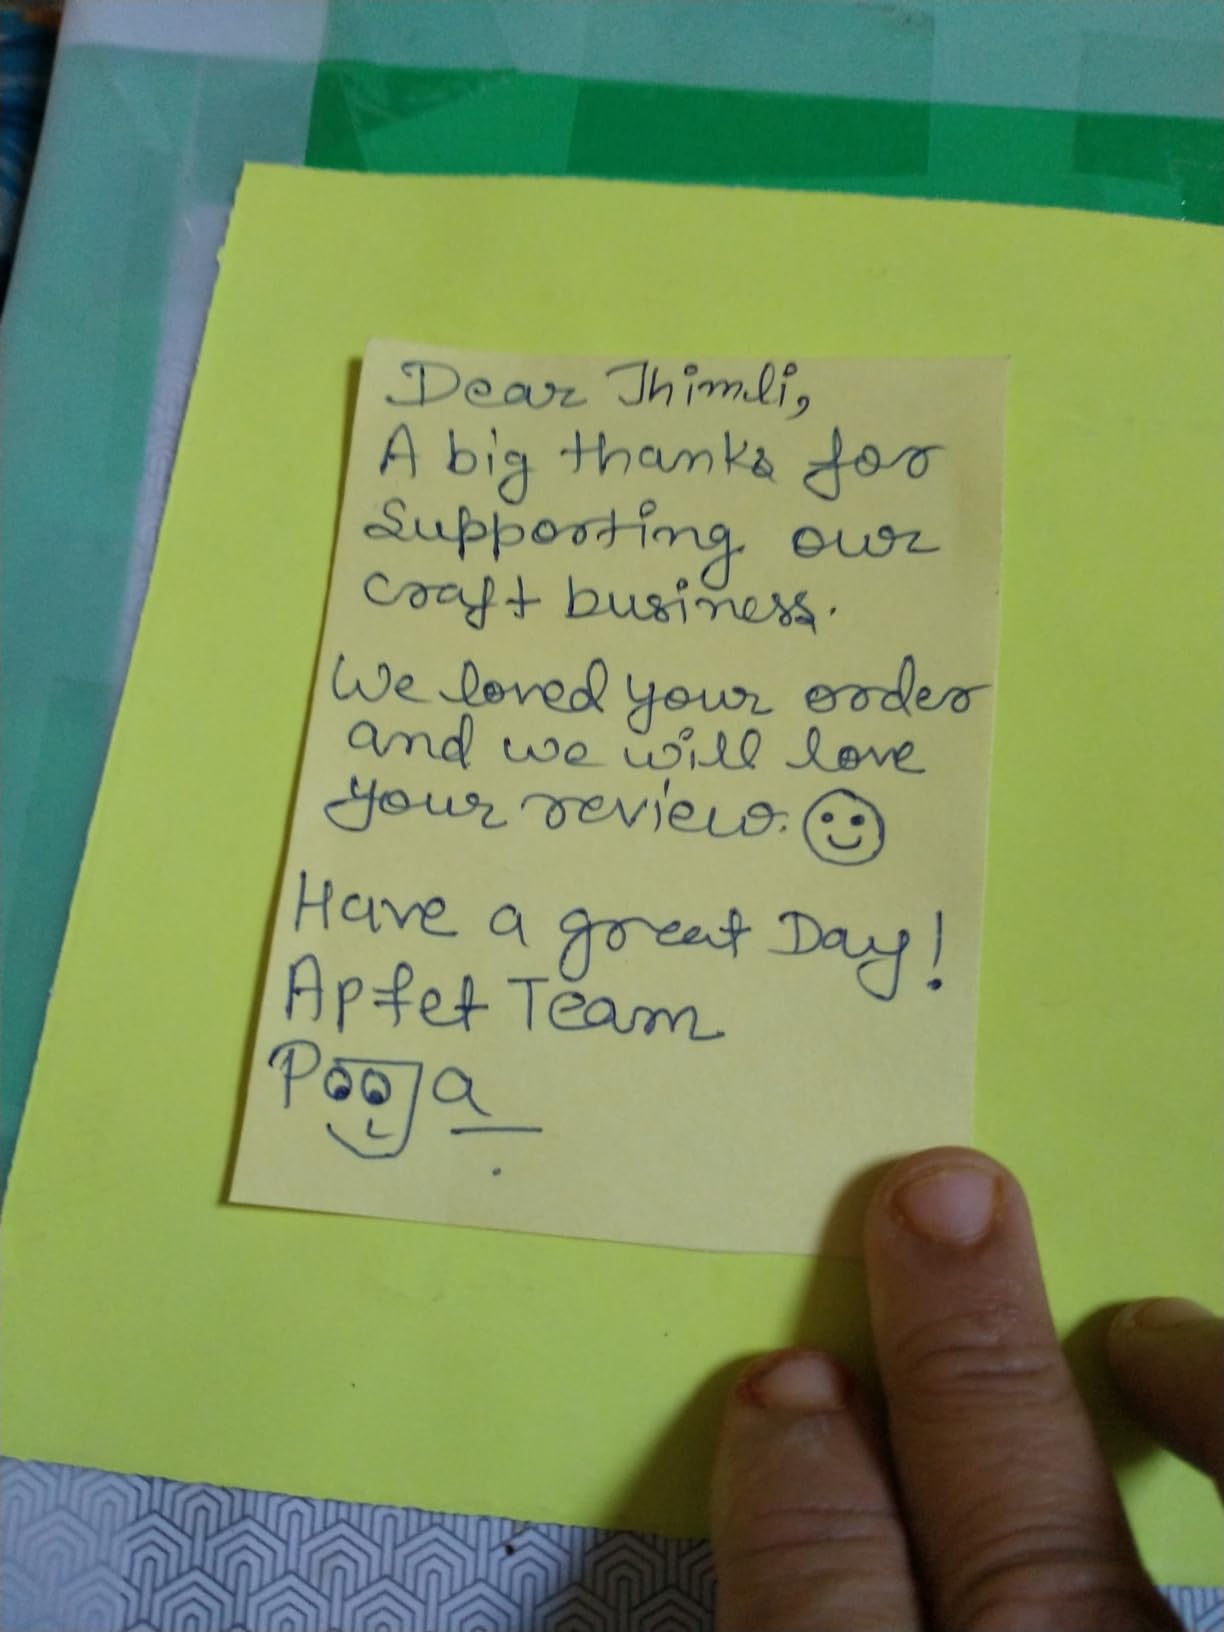 Dear Jhimli,
A big thanks for
Supporting our
craft business.
We loved your order
and we will love
your review. ☺
Have a great Day!
Apfet Team
Pooja